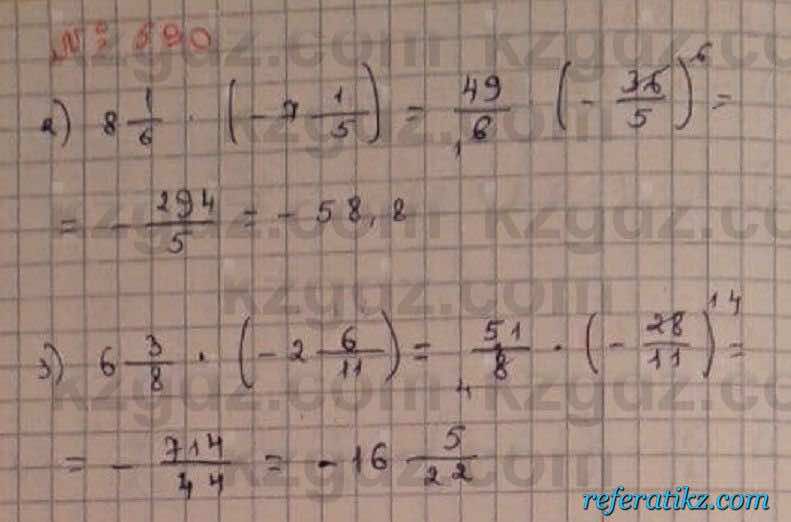 № 690
2) 8 1/6 · (-7 1/5) = 49/6 · (-36/5) =
= - 294/5 = - 58,8
3) 6 3/8 · (-2 6/11) = 51/8 · (-28/11) =
= - 714/44 = - 16 5/22
kzgdz.com
referatikz.com